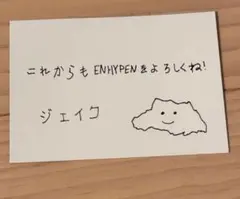 これからも ENHYPENをよろしくね!
ジェイク